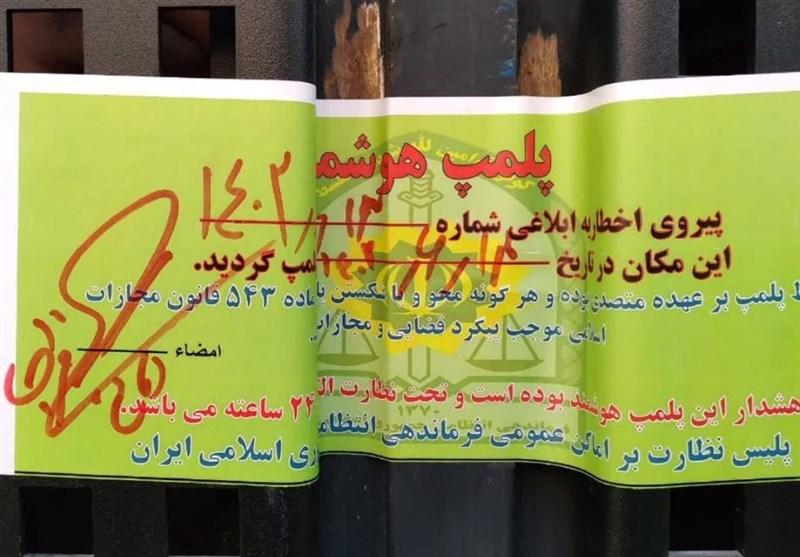 پلمپ هوشم
پیروی اخطاریه ابلاغی شماره ۱۴۰۲
این مکان در تاریخ لمپ گردید.
ظ پلمپ بر عهده متصدی بوده و هر گونه محو و یا شکستن پل ماده ۵۴۳ قانون مجازات
اسلامی موجب پیگرد قضایی و مجازات
امضاء
هشدار این پلمپ هوشمند بوده است و تحت نظارت الک ۲۴ ساعته می باشد.
۱۳۷۰
پلیس نظارت بر اماکن عمومی فرماندهی انتظام ری اسلامی ایران